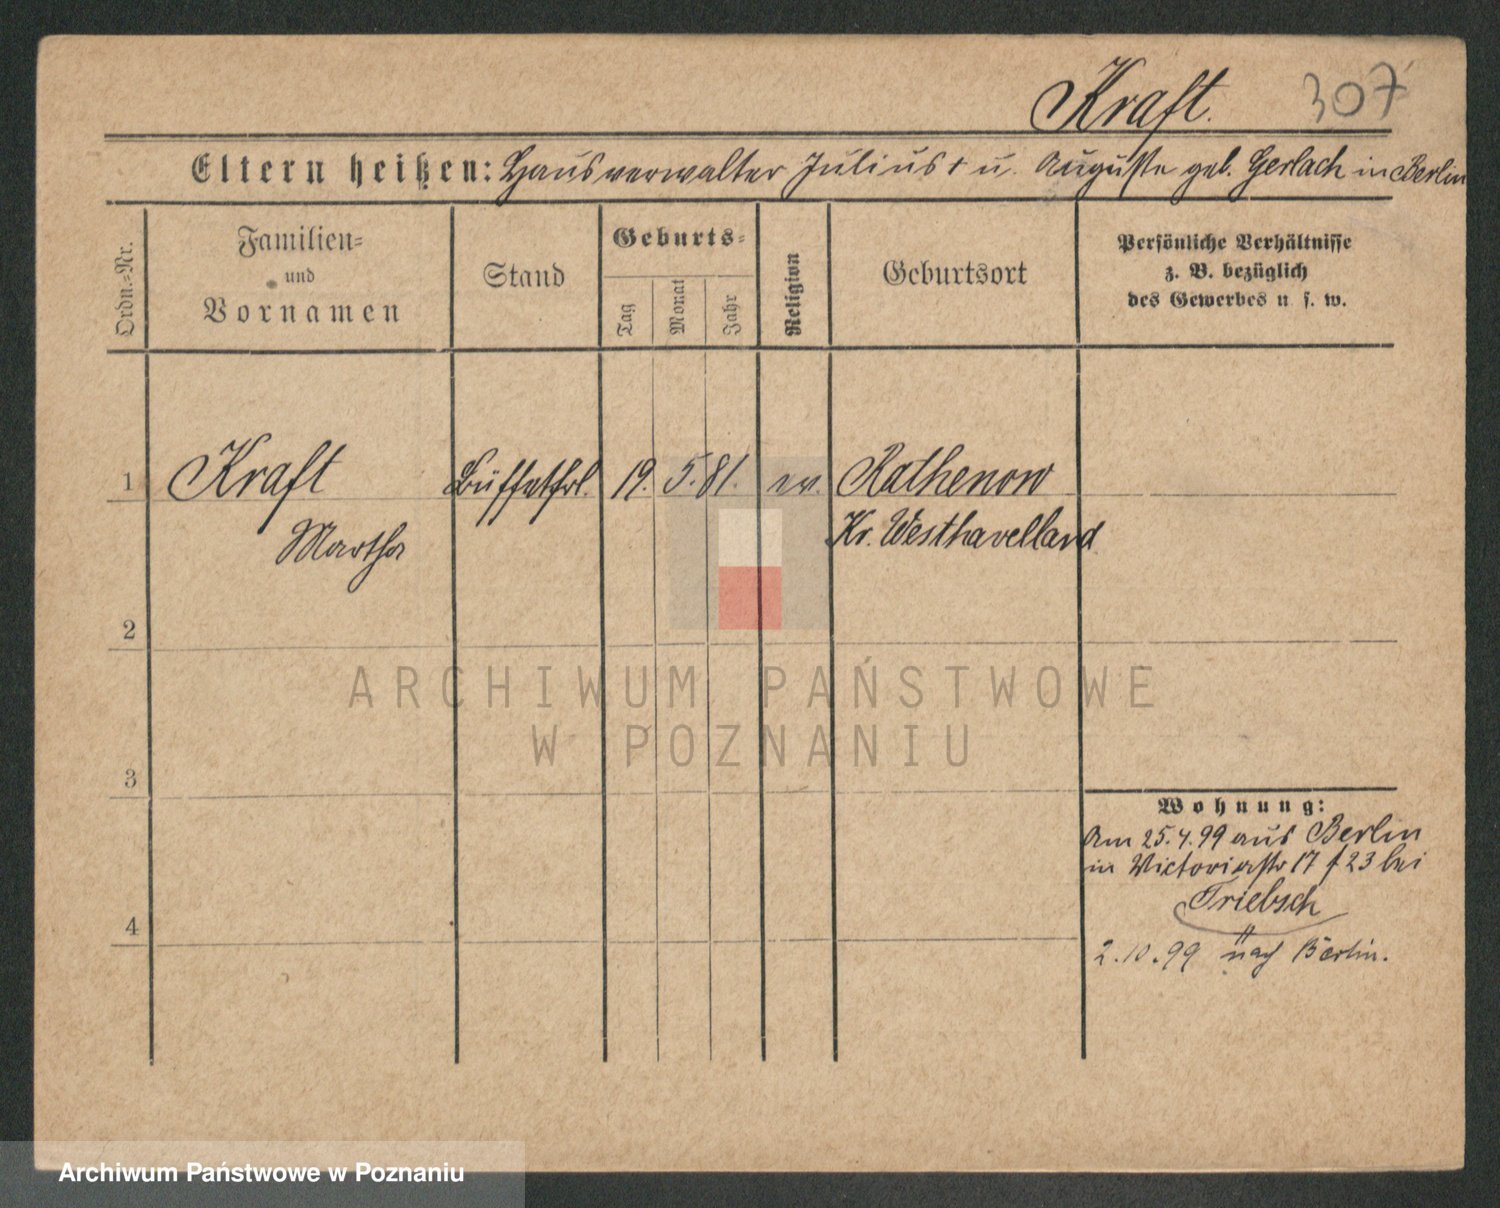 Kraft. 307
Eltern heißen: Hausverwalter Julius † u. Auguste geb. Gerlach in Berlin
Ordn.-Nr.
Familien-
und
Vornamen
Stand
Geburts-
Tag
Monat
Jahr
Religion
Geburtsort
Persönliche Verhältnisse
z. B. bezüglich
des Gewerbes u. s. w.
1 Kraft Büffetfrl. 19. 5. 81. ev. Rathenow
Martha Kr. Westhavelland
2
ARCHIWUM PAŃSTWOWE
W POZNANIU
3
Wohnung:
Am 25.4.99 aus Berlin
in Victoriastr 17 / 23 bei
Triebsch
4
2.10.99 nach Berlin.
Archiwum Państwowe w Poznaniu